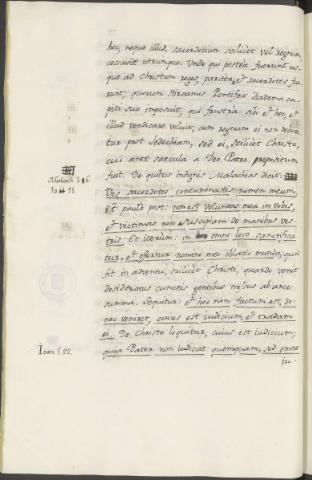 hoc, neque illud, sacerdotium scilicet vel regnum
cessavit utrumque. Unde qui postea fuerunt us-
que ad Christum reges, pariter et sacerdotes fue-
runt, quorum Hircanus Pontifex diadema ca-
piti suo imposuit, qui frustra sibi et hoc, et
illud vendicare voluit, cum regnum ei non debere-
tur post Sedechiam, sed ei, scilicet Christo,
cui erat saecula a Deo Patre prepositum
fiat. De quibus indignis Malachias dicit:
Malach. 1. 6
10. 11.
Vos sacerdotes contaminastis nomen meum,
et paulò post: non est voluntas mea in vobis,
et victimas non suscipiam de manibus ves-
tris. Et iterum: in omni loco sanctifica-
tur, et offertur nomini meo oblatio munda, quod
fit in adventu, scilicet Christi, quando venit
desideratus cunctis gentibus
summa. Sequitur: et hoc non factum est, do-
nec veniret, cuius est iudicium, et tradam
ei. De Christo loquitur, cuius est iudicium,
Ioan. 5. 22.
quia Pater non iudicat quemquam, sed omne
iu-